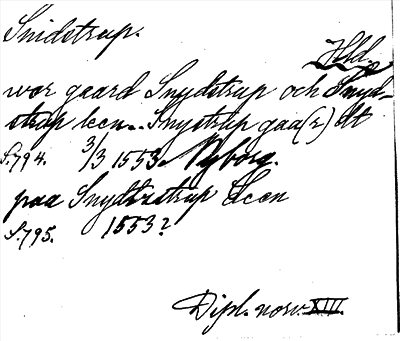 Snidstrup.
Hld.
wor gaard Snydstrup och Snyd-
strup leen. Snystrup gaa(r)dt
S. 794. 3/3 1553. Nyborg.
paa Snydtzstrup Leen
S. 795. 1553?
Dipl. norv. XIII.